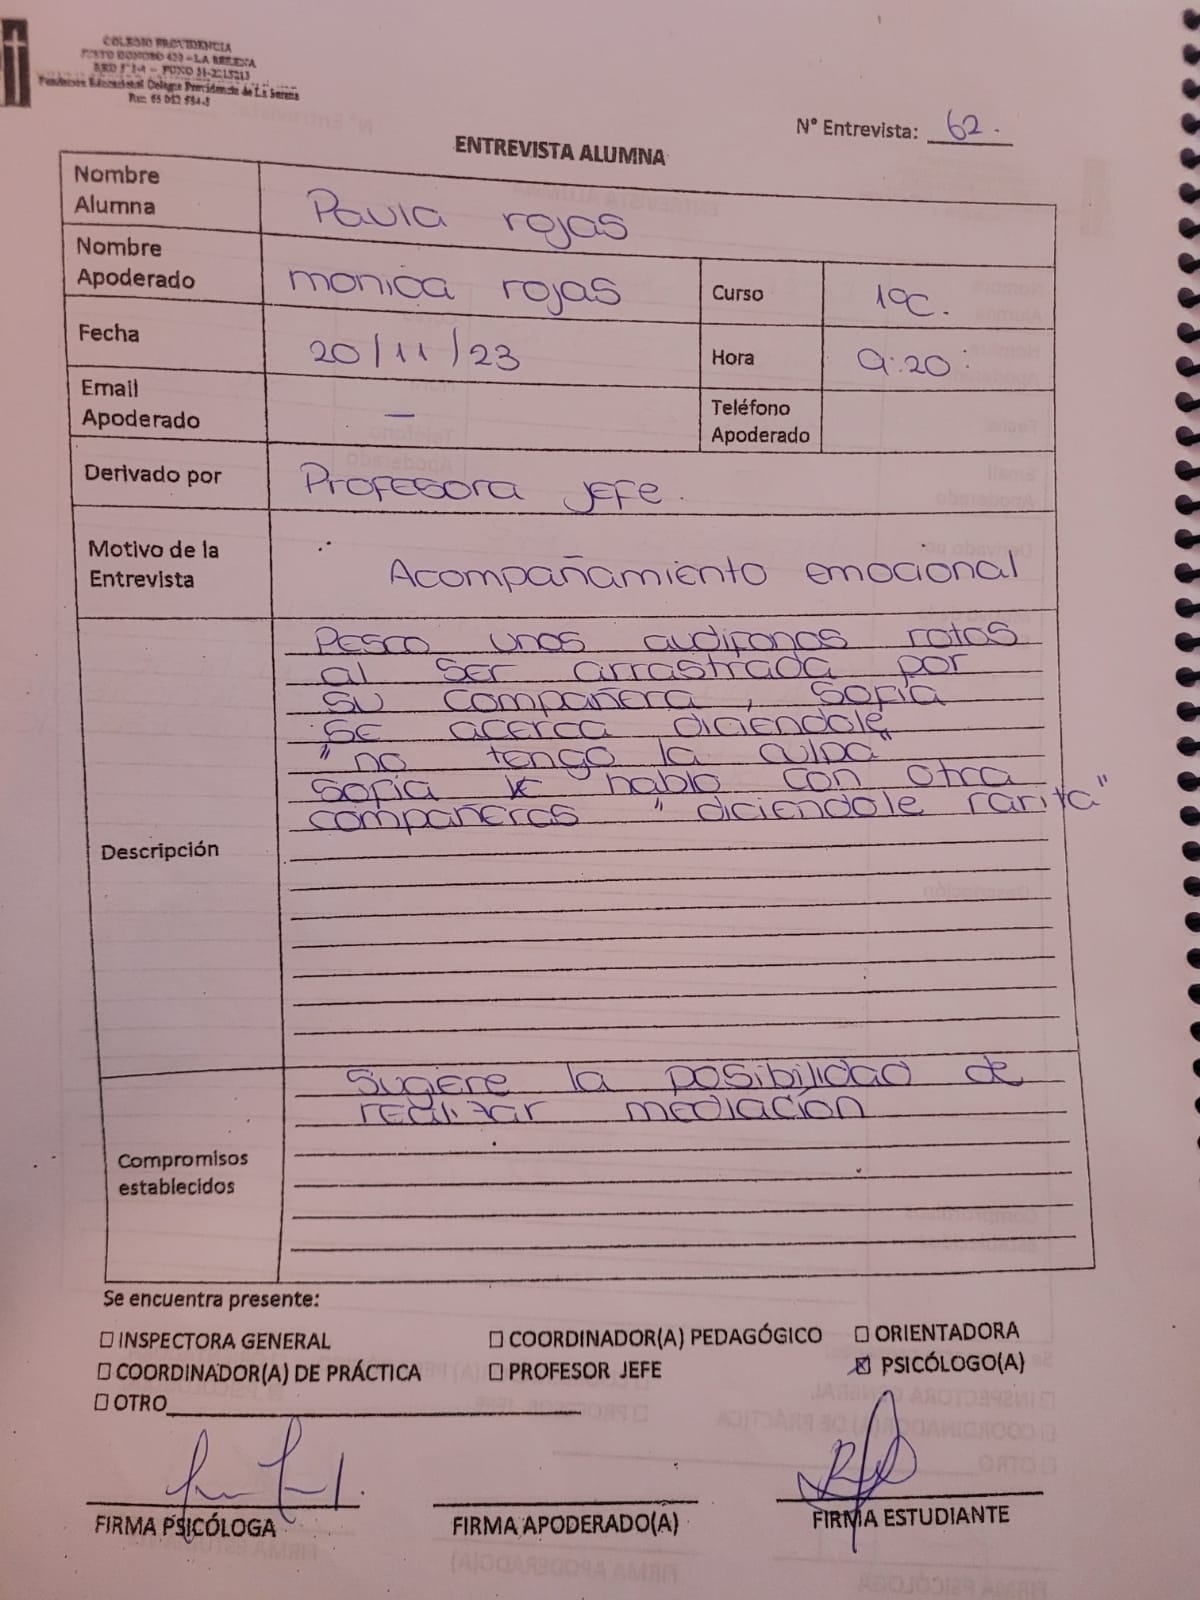 COLEGIO PROVIDENCIA
JUSTO DONOSO 420 – LA SERENA
Fundación Educacional Colegio Providencia de La Serena
N° Entrevista: 62.
ENTREVISTA ALUMNA
Nombre Alumna Paula rojas
Nombre Apoderado monica rojas Curso 1ºC.
Fecha 20/11/23 Hora 9:20
Email Apoderado — Teléfono Apoderado
Derivado por Profesora jefe.
Motivo de la Entrevista Acompañamiento emocional
Descripción
Pesco unos audifonos rotos
al ser arrastrada por
su compañera, Sofia
se acerca diciendole
"no tengo la culpa"
Sofia le hablo con otra
compañeras " diciendole rarita"
Compromisos establecidos
Sugiere la posibilidad de
realizar mediación
Se encuentra presente:
☐ INSPECTORA GENERAL ☐ COORDINADOR(A) PEDAGÓGICO ☐ ORIENTADORA
☐ COORDINADOR(A) DE PRÁCTICA ☐ PROFESOR JEFE ☒ PSICÓLOGO(A)
☐ OTRO
FIRMA PSICÓLOGA FIRMA APODERADO(A) FIRMA ESTUDIANTE